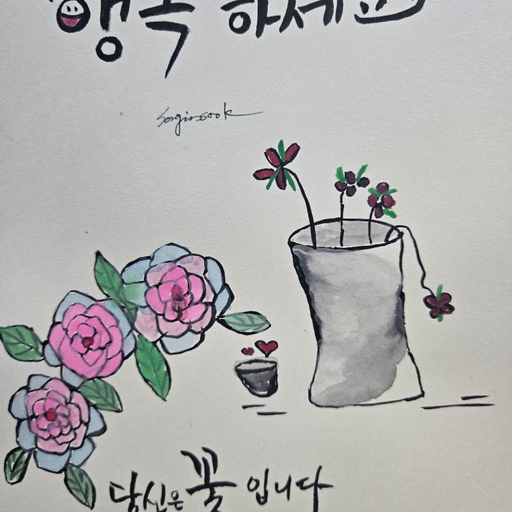 행복 하세요
Songinsook
당신은 꽃 입니다